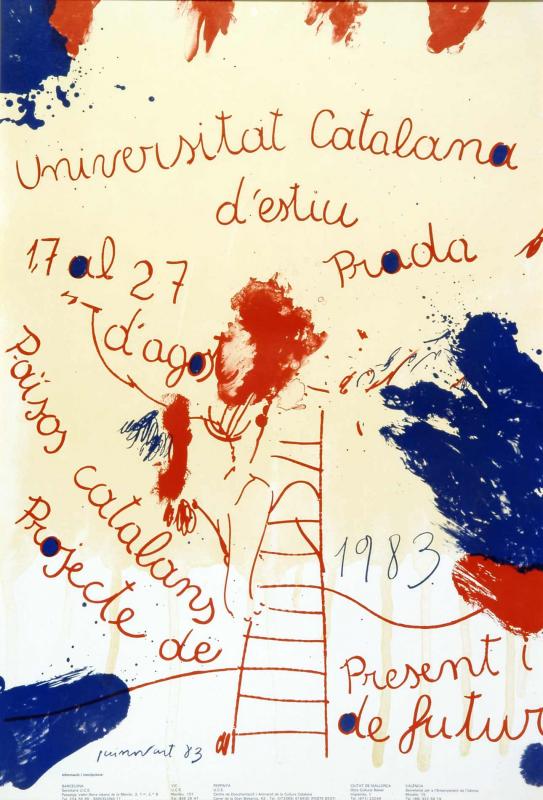 Universitat Catalana
d'estiu
Prada
17 al 27
d'agost
Països catalans
Projecte de
1983
Present i
de futur
guinovart 83
Informació i inscripcions:
BARCELONA
Secretaria U.C.E.
VIC
U.C.E.
PERPINYÀ
U.C.E.
Centre de Documentació i Animació de la Cultura Catalana
CIUTAT DE MALLORCA
Obra Cultural Balear
VALÈNCIA